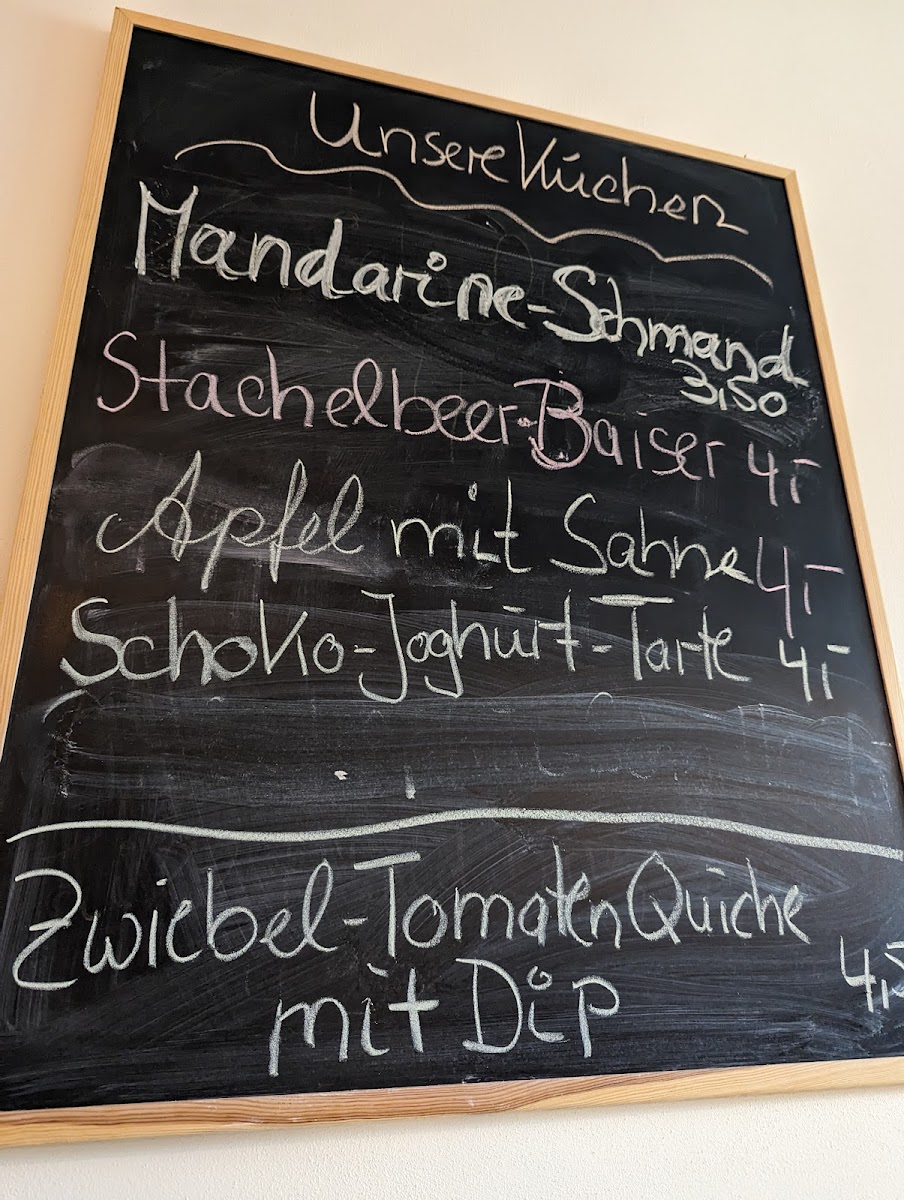 Unsere Küchen
Mandarine-Schmand
3,50
Stachelbeer-Baiser 4,-
Apfel mit Sahne 4,-
Schoko-Joghurt-Tarte 4,-
Zwiebel-Tomaten Quiche
mit Dip